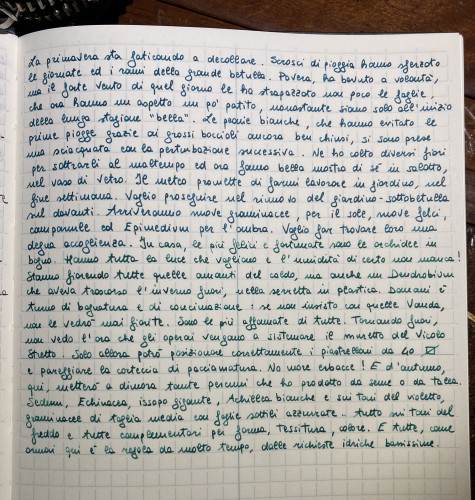 La primavera sta faticando a decollare. Scrosci di pioggia hanno sferzato
le giornate ed i rami della grande betulla. Povera, ha bevuto a volontà,
ma il forte vento di quel giorno le ha strapazzato non poco le foglie,
che ora hanno un aspetto un po' patito, nonostante siamo solo all'inizio
della lunga stagione "bella". Le peonie bianche, che hanno evitato le
prime piogge grazie ai grossi boccioli ancora ben chiusi, si sono prese
una sciacquata con la perturbazione successiva. Ne ho colto diversi fiori
per sottrarli al maltempo ed ora fanno bella mostra di sé in salotto,
nel vaso di vetro. Il meteo promette di farmi lavorare in giardino, nel
fine settimana. Voglio proseguire nel rinnovo del giardino-sottobetulla
sul davanti. Arriveranno nuove graminacee, per il sole, nuove felci,
campanule ed Epimedium per l'ombra. Voglio far trovare loro una
degna accoglienza. In casa, le più felici e fortunate sono le orchidee in
bagno. Hanno tutta la luce che vogliono e l'umidità di certo non manca!
Stanno fiorendo tutte quelle amanti del caldo, ma anche un Dendrobium
che aveva trascorso l'inverno fuori, nella serretta in plastica. Domani è
turno di bagnatura e di concimazione: se non insisto con quelle Vanda,
non le vedrò mai fiorite. Sono le più affamate di tutte. Tornando fuori,
non vedo l'ora che gli operai vengano a sistemare il muretto del Vicolo
Stretto. Solo allora potrò posizionare correttamente i piastrelloni da 40
e pareggiare la corteccia di pacciamatura. No more erbacce! E d'autunno,
qui, metterò a dimora tante perenni che ho prodotto da seme o da talea.
Sedum, Echinacea, issopo gigante, Achillea bianche e sui toni del violetto,
graminacee di taglia media con foglie sottili azzurrate.. tutto sui toni del
freddo e tutte complementari per forma, tessitura, colore. E tutte, come
ormai qui è la regola da molto tempo, dalle richieste idriche bassissime.